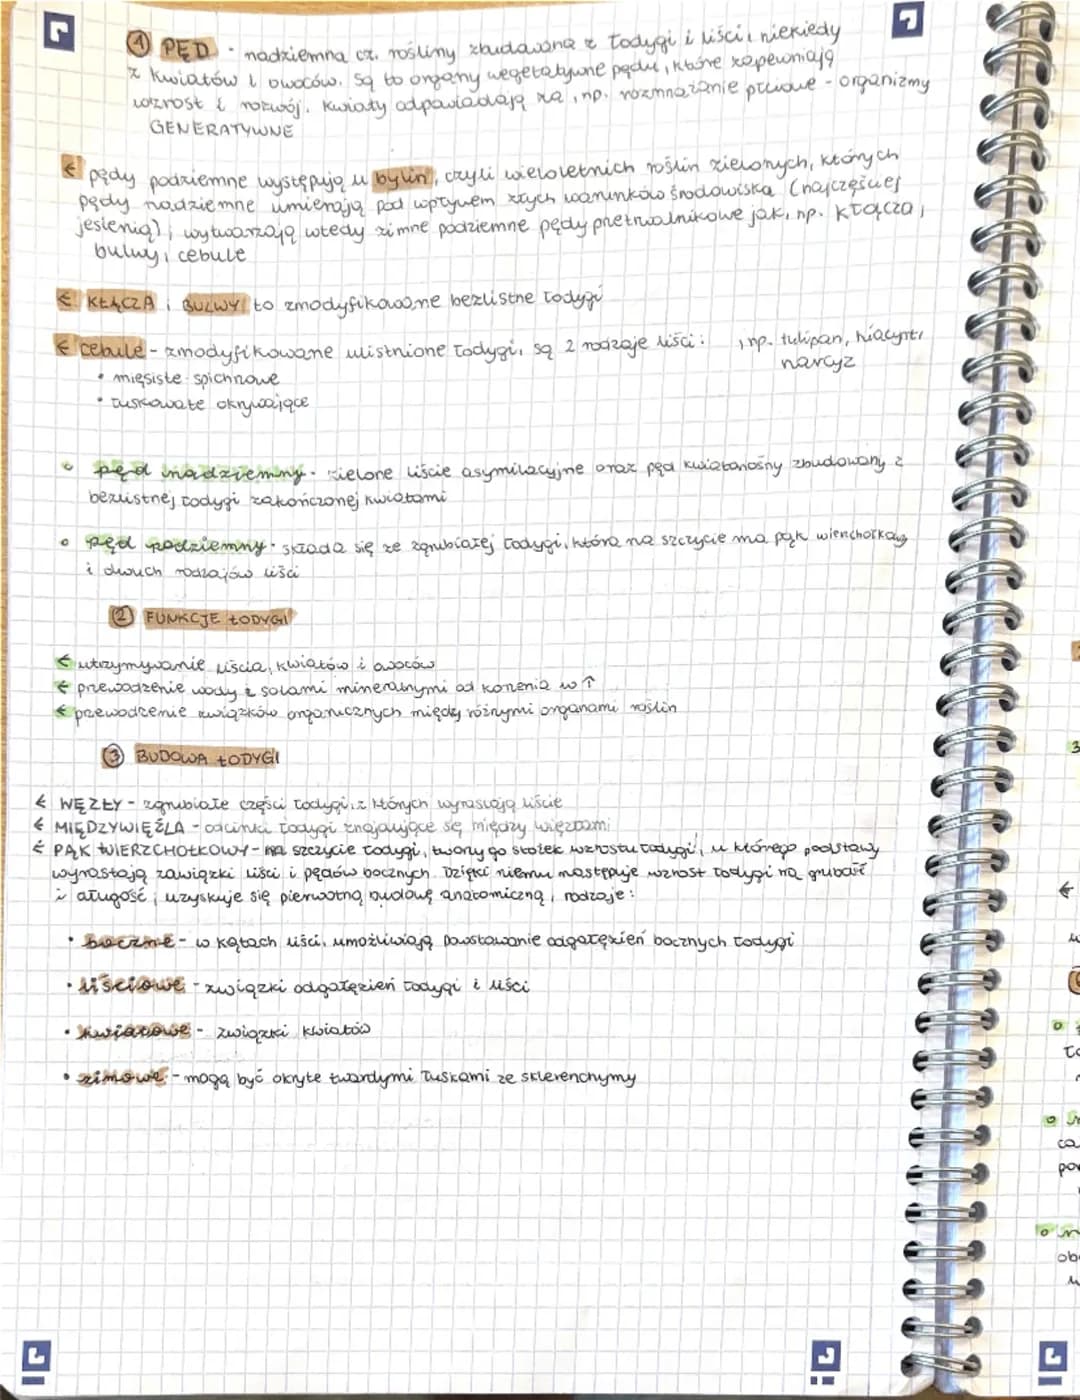 ① PĘD - nadziemna cz. rośliny zbudawana z łodygi i liści i niekiedy
z kwiatów i owoców. Są to organy wegetatywne pędu, które zapewniają
wzrost i rozwój. Kwiaty odpowiadają za, np. rozmnażanie płciowe - organizmy
GENERATYWNE
← pędy podziemne występują u bylin, czyli wieloletnich roślin zielonych, których
pędy nadziemne umierają pod wpływem złych warunków środowiska (najczęściej
jesienią), wytwarzają wtedy zimne podziemne pędy przetrwalnikowe jak, np. kłącza,
bulwy, cebule
← KŁĄCZA i BULWY to zmodyfikowane bezlistne łodygi
← cebule - zmodyfikowane ulistnione łodygi, są 2 rodzaje liści: , np. tulipan, hiacynt,
narcyz
• mięsiste spichrzowe
• łuskowate okrywające
○ pęd nadziemny - zielone liście asymilacyjne oraz pęd kwiatonośny zbudowany z
bezlistnej łodygi zakończonej kwiatami
○ pęd podziemny - składa się ze zgrubiałej łodygi, która na szczycie ma pąk wierzchołkowy
i dwuch rodzajów liści
② FUNKCJE ŁODYGI
← utrzymywanie liścia, kwiatów i owoców
← przewodzenie wody z solami mineralnymi od korzenia w ↑
← przewodzenie związków organicznych między różnymi organami roślin
③ BUDOWA ŁODYGI
← WĘZŁY - zgrubiałe części łodygi, z których wyrastają liście
← MIĘDZYWIĘŹLA - odcinki łodygi znajdujące się między węzłami
← PĄK WIERZCHOŁKOWY - na szczycie łodygi, tworzy go stożek wzrostu łodygi, u którego podstawy
wyrastają zawiązki liści i pędów bocznych. Dzięki niemu następuje wzrost łodygi na grubość
i długość, uzyskuje się pierwotną budowę anatomiczną, rodzaje:
• boczne - w kątach liści, umożliwiają powstawanie odgałęzień bocznych łodygi
• liściowe - związki odgałęzień łodygi i liści
• kwiatowe - związki kwiatów
• zimowe - mogą być okryte twardymi łuskami ze sklerenchymy